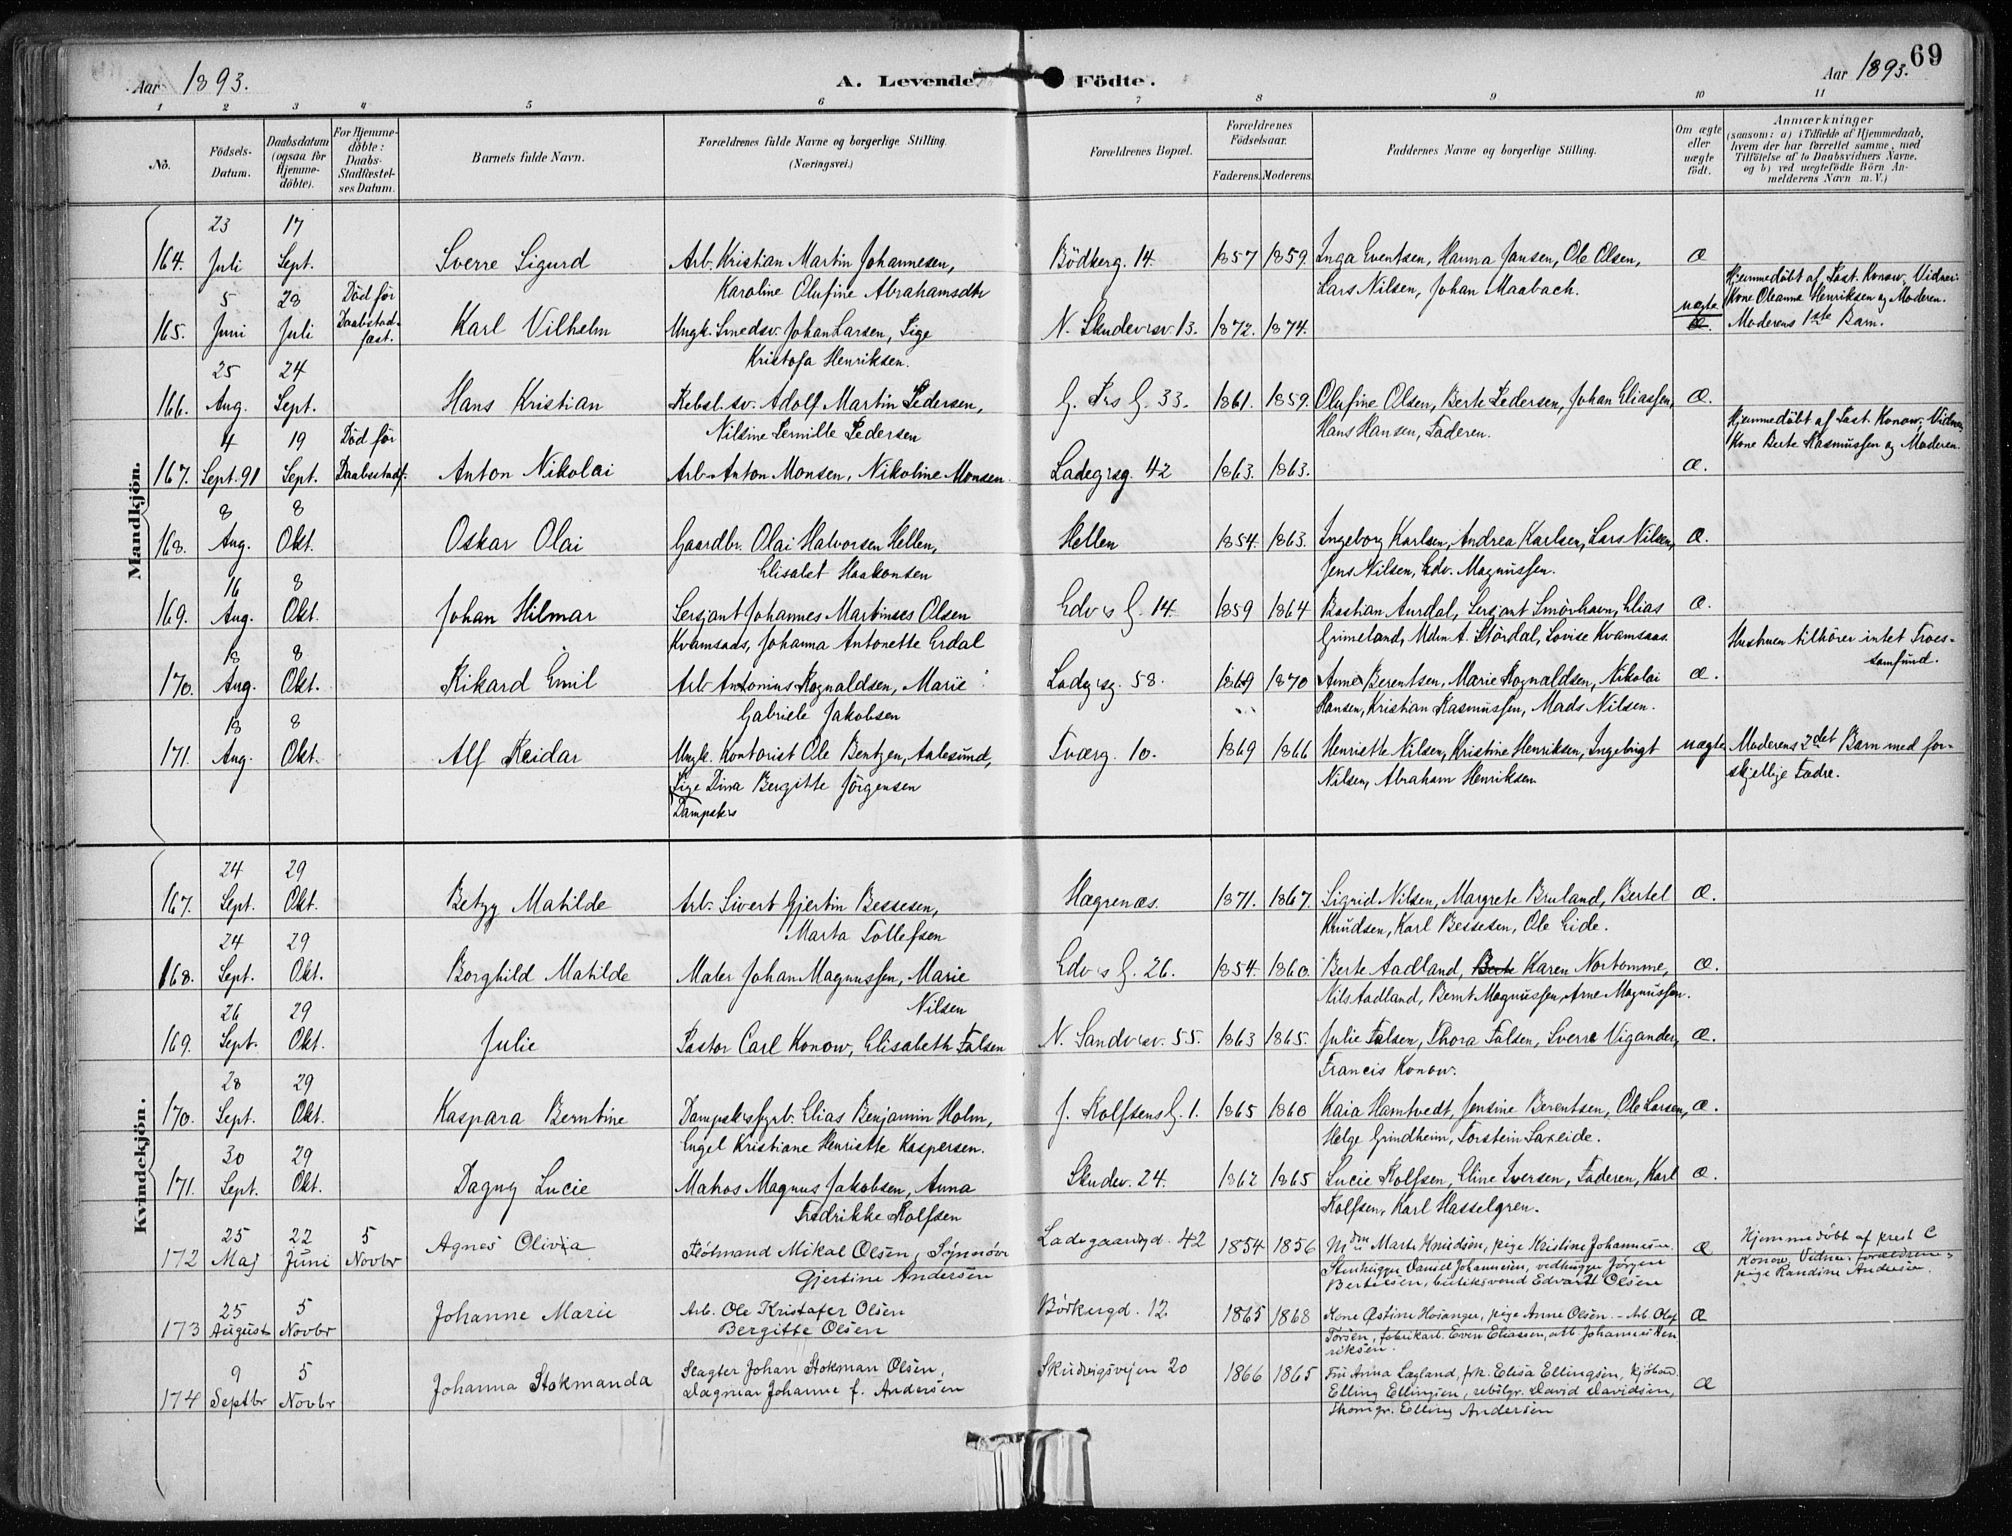 69
Aar 1893. A. Levende Födte. Aar 1893.
1 2 3 4 5 6 7 8 9 10 11
No. Födsels-Datum. Daabsdatum (ogsaa for Hjemme-döbte). For Hjemme-döbte: Daabs-Stadfæstel-ses Datum. Barnets fulde Navn. Forældrenes fulde Navne og borgerlige Stilling. (Næringsvei.) Forældrenes Bopæl. Forældrenes Födselsaar. Faderens. Moderens. Faddernes Navne og borgerlige Stilling. Om ægte eller uægte födt. Anmærkninger (saasom: a) i Tilfælde af Hjemmedaab, hvem der har forrettet samme, med Tilföielse af to Daabsvidners Navne, og b) ved uægtefödte Börn An-melderens Navn m. V.)
Mandkjön.
164. 23 Juli 17 Sept. Sverre Sigurd Arb. Kristian Martin Johannesen, Bödkerg. 14. 1857 1859. Inga Evertsen, Hanna Jansen, Ole Olsen, Æ
Karoline Olufine Abrahamsdtr Lars Nilsen, Johan Maabach.
165. 5 Juni 23 Juli Död för Daabstad-fæst. Karl Vilhelm Ungk. Smedsv. Johan Larsen, Pige N. Skudevsv. 13. 1872. 1874. uægte Hjemmedöbt af Past. Konow, Vidner: Kone Oleanne Henriksen og Moderen. Moderens 1ste Barn.
Kristofa Henriksen.
166. 25 Aug. 24 Sept. Hans Kristian Rebsl.sv. Adolf Martin Pedersen, G. 33. 1861. 1859. Olufine Olsen, Berte Pedersen, Johan Eliassen, Æ.
Nilsine Pernille Pedersen Hans Hansen, Faderen.
167. 4 Sept. 91 19 Sept. Död för Daabsstadf. Anton Nikolai Arb. Anton Monsen, Nikoline Monsen. Ladegrsg. 42 1863. 1863. Æ. Hjemmedöbt af Past. Konow; Vidner, Kone Berte Rasmussen og Moderen.
168. 8 Aug. 8 Okt. Oskar Olai Gaardbr. Olai Halvorsen Hellen, Hellen 1854. 1863. Ingeborg Karlsen, Andrea Karlsen, Lars Nilsen, Æ.
Elisabet Haakonsen Jens Nilsen, Edv. Magnussen.
169. 16 Aug. 8 Okt. Johan Hilmar Sersjant Johannes Martinses Olsen Edvs G. 14. 1859 1864 Bastian Aurdal, Sersjant Smörhavn, Elias Æ.
Kvamsads, Johanna Antonette Erdal Grimeland, Mdm A. Stördal, Lovise Kvamsaas.
170. 18 Aug. 8 Okt. Rikard Emil Arb. Antonius Rognaldsen, Marie Ladegrsg. 58. 1869 1870 Anne Berentsen, Marie Rognaldsen, Nikolai Æ. Hustruen tilhörer intet Troes-samfund.
Gabriele Jakobsen Hansen, Kristian Rasmussen, Mads Nilsen.
171. 18 Aug. 8 Okt. Alf Reidar Ungk. Kontorist Ole Bentzen, Aalesund, Tværg. 10. 1869 1866 Henriette Nilsen, Kristine Henriksen, Ingebrigt uægte Moderens 2det Barn med for-skjellige Fædre.
Pige Dina Bergitte Jörgensen Nilsen, Abraham Henriksen
Dampskrs
Kvindekjön.
167. 24 Sept. 29 Okt. Betzy Matilde Arb. Sivert Gjertin Bessesen, Hægrenæs. 1871. 1867. Sigrid Nilsen, Margrete Bruland, Bertel Æ.
Marta Tollefsen Knudsen, Karl Bessesen, Ole Eide.
168. 24 Sept. 29 Okt. Borghild Matilde Maler Johan Magnussen, Marie Edvs G. 26. 1854. 1860. Berte Aadland, Berte Karen Nortomme, Æ.
Nilsen Nils Aadland, Bernt Magnussen, Arne Magnussen.
169. 26 Sept. 29 Okt. Julie Pastor Carl Konow, Elisabeth Falsen N. Sandvsv. 55. 1863 1865. Julie Falsen, Thora Falsen, Sverre Vigander, Æ.
Francis Konow.
170. 28 Sept. 29 Okt. Kaspara Berntine Dampskrsfyrb. Elias Benjamin Holm, J. Rolfsens G. 1. 1865 1860 Kaia Hamtvedt, Jensine Berentsen, Ole Larsen, Æ.
Engel Kristiane Henriette Kaspersen. Helge Grindheim, Torstein Saxeide.
171. 30 Sept. 29 Okt. Dagny Lucie Matros Magnus Jakobsen, Anna Skudev. 24. 1862 1865 Lucie Rolfsen, Eline Iversen, Faderen, Karl Æ.
Fredrikke Rolfsen Rolfsen, Karl Hasselgren.
172 25 Maj 22 Juni 5 Novbr Agnes Olivia Flötmand Mikal Olsen, Synnöve Ladegaardsgd. 42 1854 1856 Mdm Marte Knudsen, pige Kristine Johannesen. Æ Hjemmedöbt af prest C Konow Vidner: forældrene, pige Randine Andersen.
Gjertine Andersen Stenhugger Daniel Johannesen, vedhugger Jörgen
Bertelsen, butiksvend Edvardt Olsen
173 25 August 5 Novbr Johanne Marie Arb. Ole Kristofer Olsen Bödkergd. 12. 1865 1868 Kone Østine Hosanger, pige Anne Olsen. - Arb. Olaf Æ
Bergitte Olsen Torsen, fabrikarb. Even Eliassen, arb. Johannes Hen
riksen.
174 9 Septbr 5 Novbr Johanna Stokmanda Slagter Johan Stokman Olsen, Skudevigsveien 20 1866 1865 Fru Anna Lægland, frk. Elisa Ellingsen, kjöbm. Æ
Dagmar Johanne f. Andersen Elling Ellingsen, rebslgr. David Davidsen,
Elling Andersen